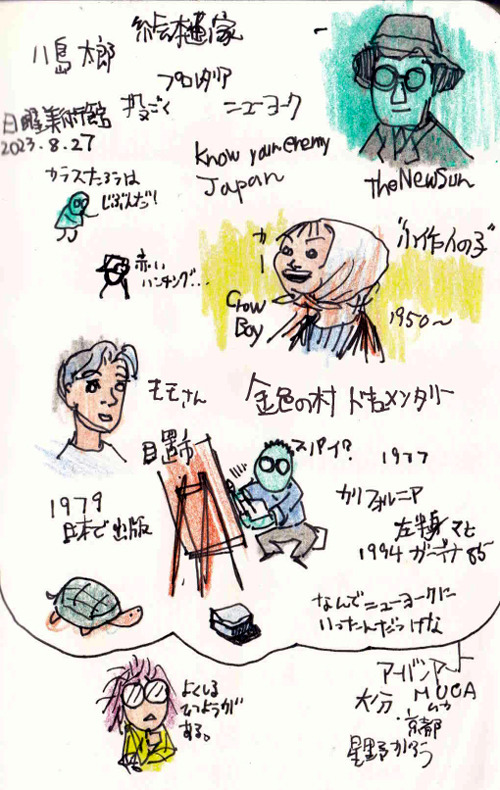 絵本画家
川島太郎
プロレタリア
投ごく
ニューヨーク
日曜美術館
2023.8.27
Know your enemy
Japan
the New Sun
カラスたろうは
じぶんだ!
赤い
ハンチング...
カー
"小作人の子"
Crow
Boy
1950〜
モモさん
金色の村 ドキュメンタリー
スパイ?
1977
カリフォルニア
1979
日本で出版
左半身マヒ
1994 ガーデナ 85
なんでニューヨークに
いったんだっけな
よくしる
ひつようが
ある。
アーバンアート
大分 MUCA
ムカ
京都